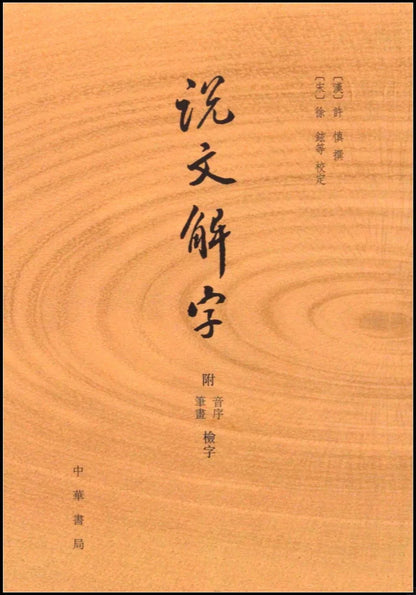 〔漢〕許慎 撰
〔宋〕徐鉉等 校定
说文解字
附 音序 筆畫 檢字
中華書局